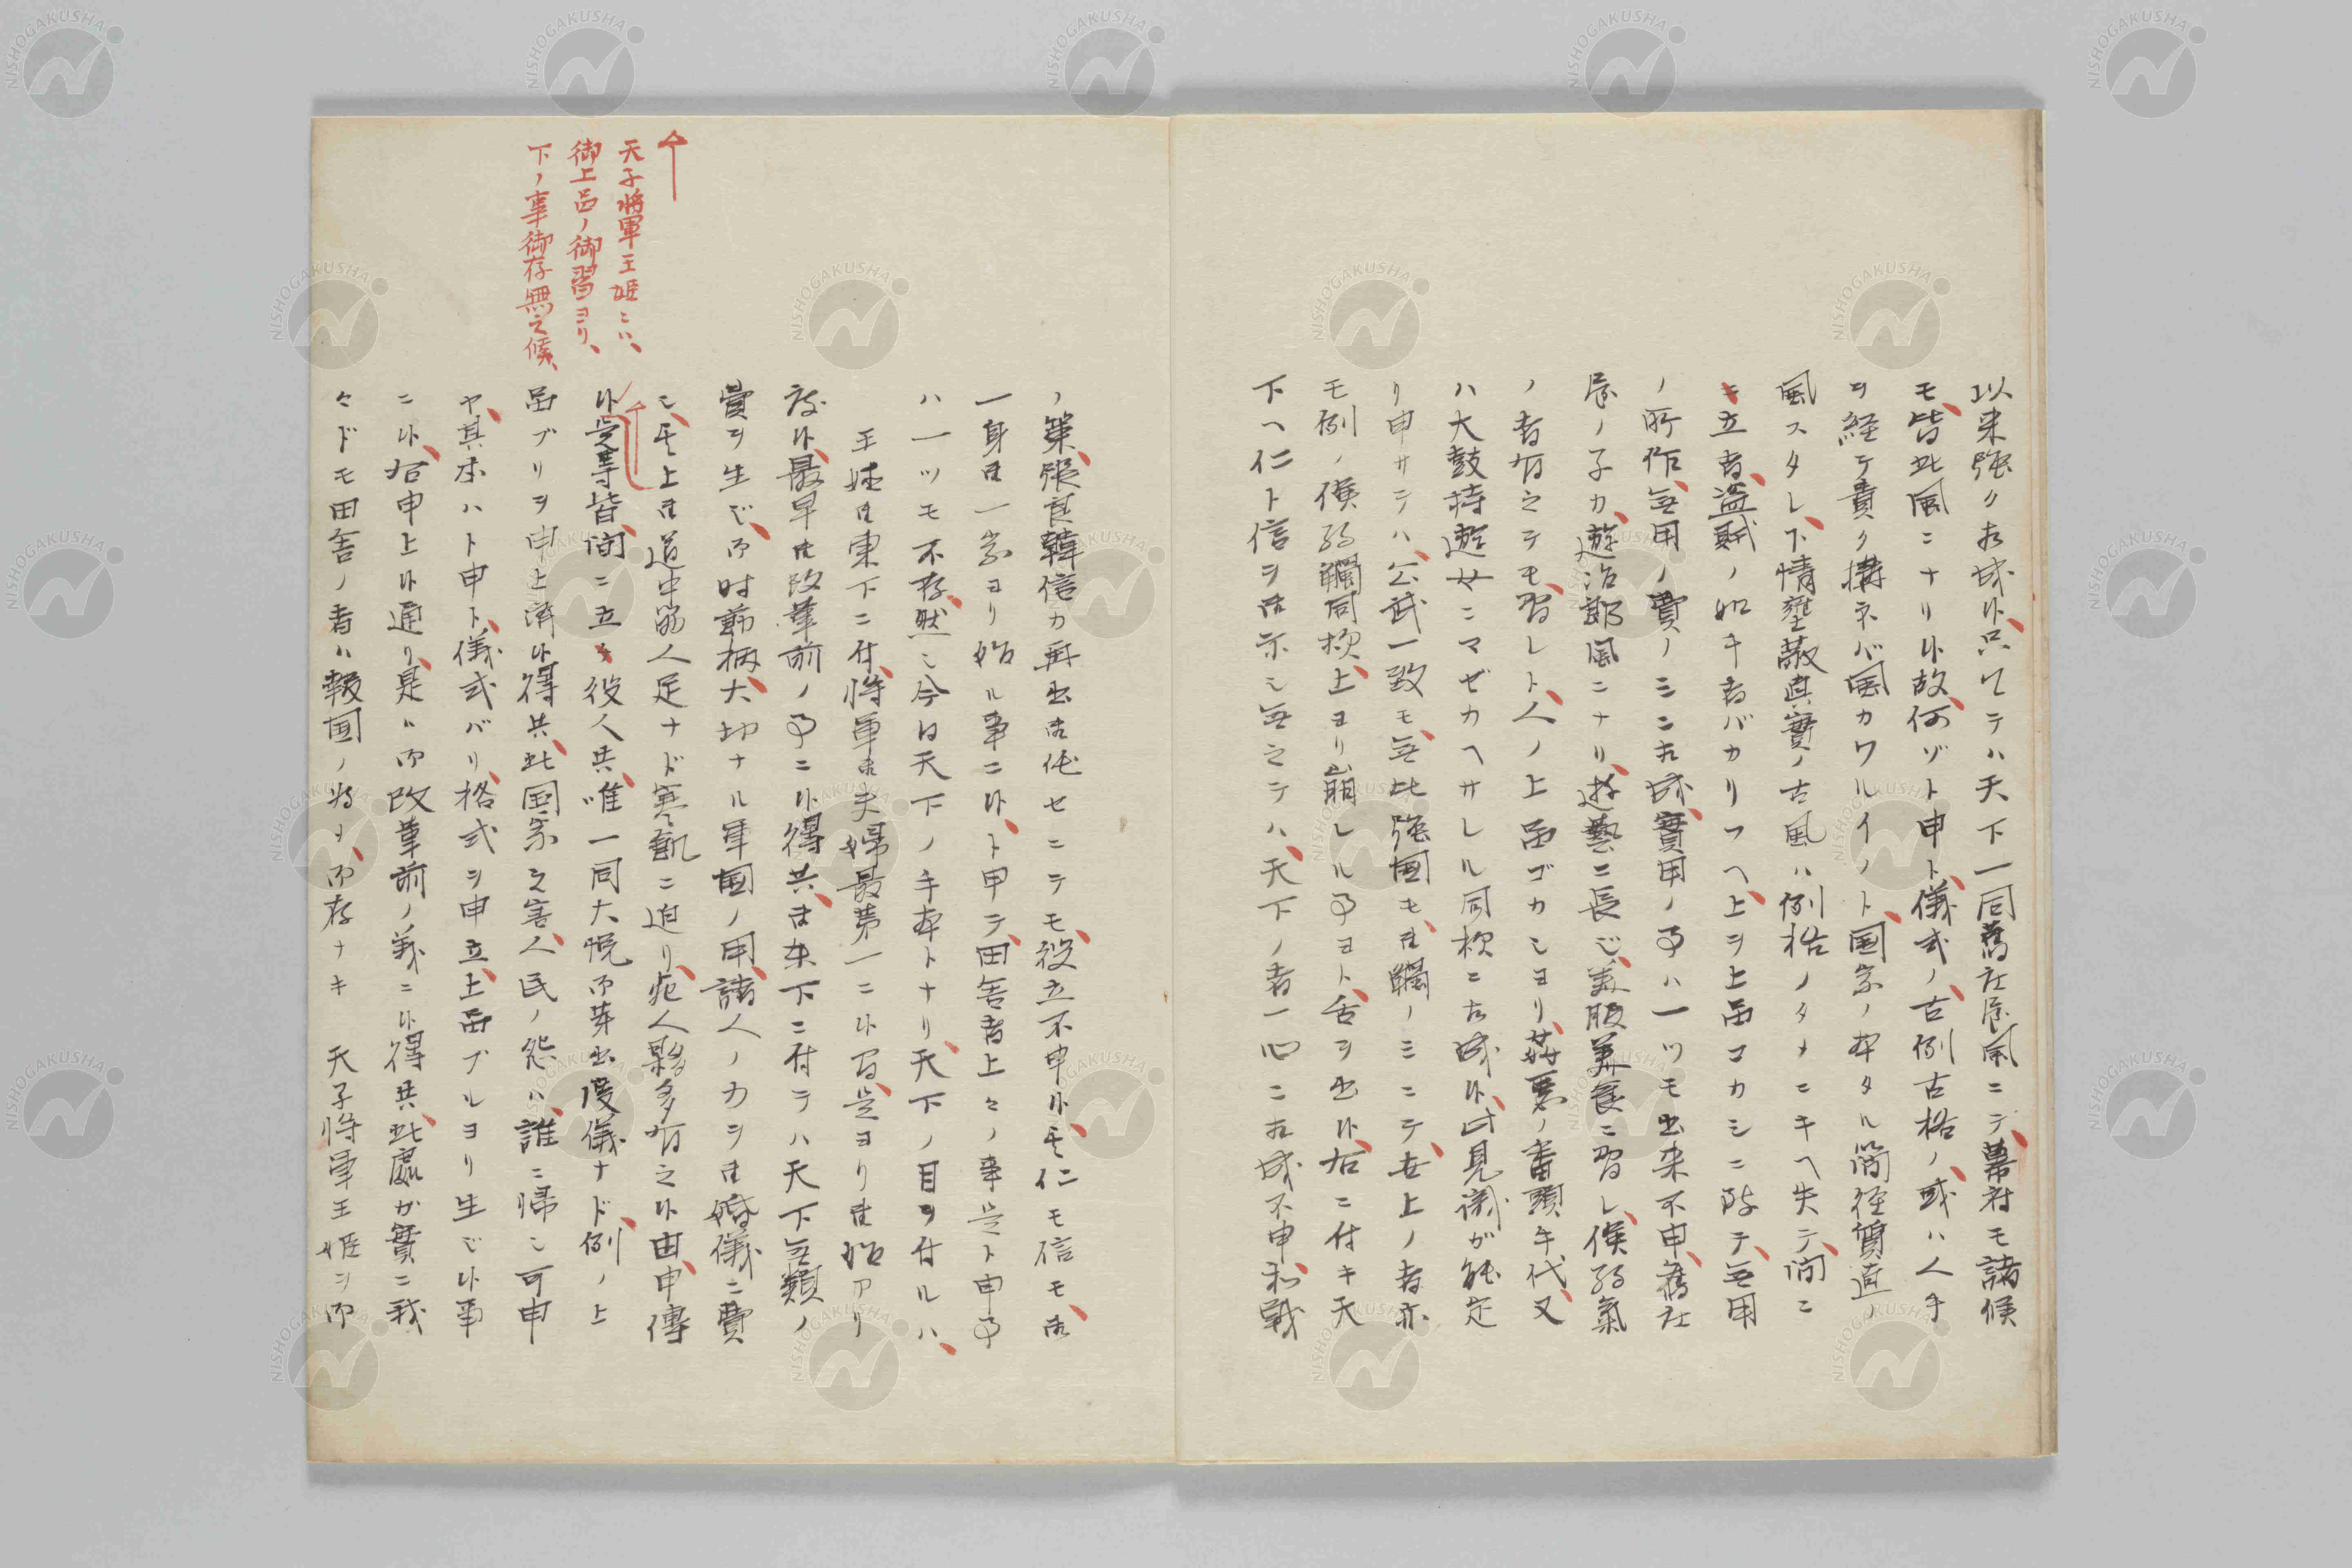 以来強ク相成候只以テハ天下一同舊社屋風ニテ幕府モ諸侯
モ皆此風ニナリ候故何ゾト申ト儀式ノ古例古格ノ或ハ人手
ヲ経テ貴ク構ネバ風カワルイノト国家ノ本タル簡径質直ノ
風スタレ下情壅蔽真實ノ古風ハ例格ノタメニキヘ失テ間ニ
立者盗賊ノ如キ者バカリフヘ上ヲ上品コカシニ致テ無用
ノ所作無用ノ費ノミニ相成實用ノ事ハ一ツモ出来不申舊社
屋ノ子カ遊冶郎風ニナリ遊藝ニ長ジ美服美食ニ習レ儒弱氣
ノ者有之テモ習レト人ノ上品ゴカシヨリ姦悪ノ番頭手代又
ハ大鼓持遊女ニマゼカヘサレル同様ニ相成候此見識が能定
リ申サテハ公武一致モ無比強国モ御觸ノミニテ世上ノ者亦
モ例ノ儒弱觸同様上ヨリ崩レル事ヨト舌ヲ出候右ニ付キ天
下ヘ仁ト信ヲ御示シ無之テハ天下ノ者一心ニ相成不申和戦
ノ策張良韓信カ再出御任セニテモ役立不申候其仁モ信モ御
一身御一家ヨリ始ル事ニ候ト申テ田舎者上々ノ事決ト申事
ハ一ツモ不存然シ今日天下ノ手本トナリ天下ノ目ヲ付ルハ
王姫御東下ニ付将軍御夫婦最第一ニ候間是ヨリ御始アリ
度候最早御改革前ノ事ニ候得共御東下ニ付テハ天下無類ノ
費ヲ生ジ而時節柄大切ナル軍国ノ用諸人ノ力ヲ御婚儀ニ費
シ其上御道中筋人足ナド寒飢ニ迫リ死人夥多有之候由申傳
候是等皆間ニ立役人共唯一同大慌而芽出度儀ナド例ノ上
品ブリヲ申上済候得共此国家之害人民ノ怨ハ誰ニ帰シ可申
ヤ其本ハト申ト儀式バリ格式ヲ申立上品ブルヨリ生ジ候事
ニ候右申上候通リ是ハ而改革前ノ義ニ候得共此處が實ニ我
々ドモ田舎ノ者ハ報国ノ為メ而存ナキ　天子将軍王姫ヲ而
天子将軍王姫ニハ、
御上品ノ御習ヨリ、
下ノ事御存無之候、
NISHOGAKUSHA